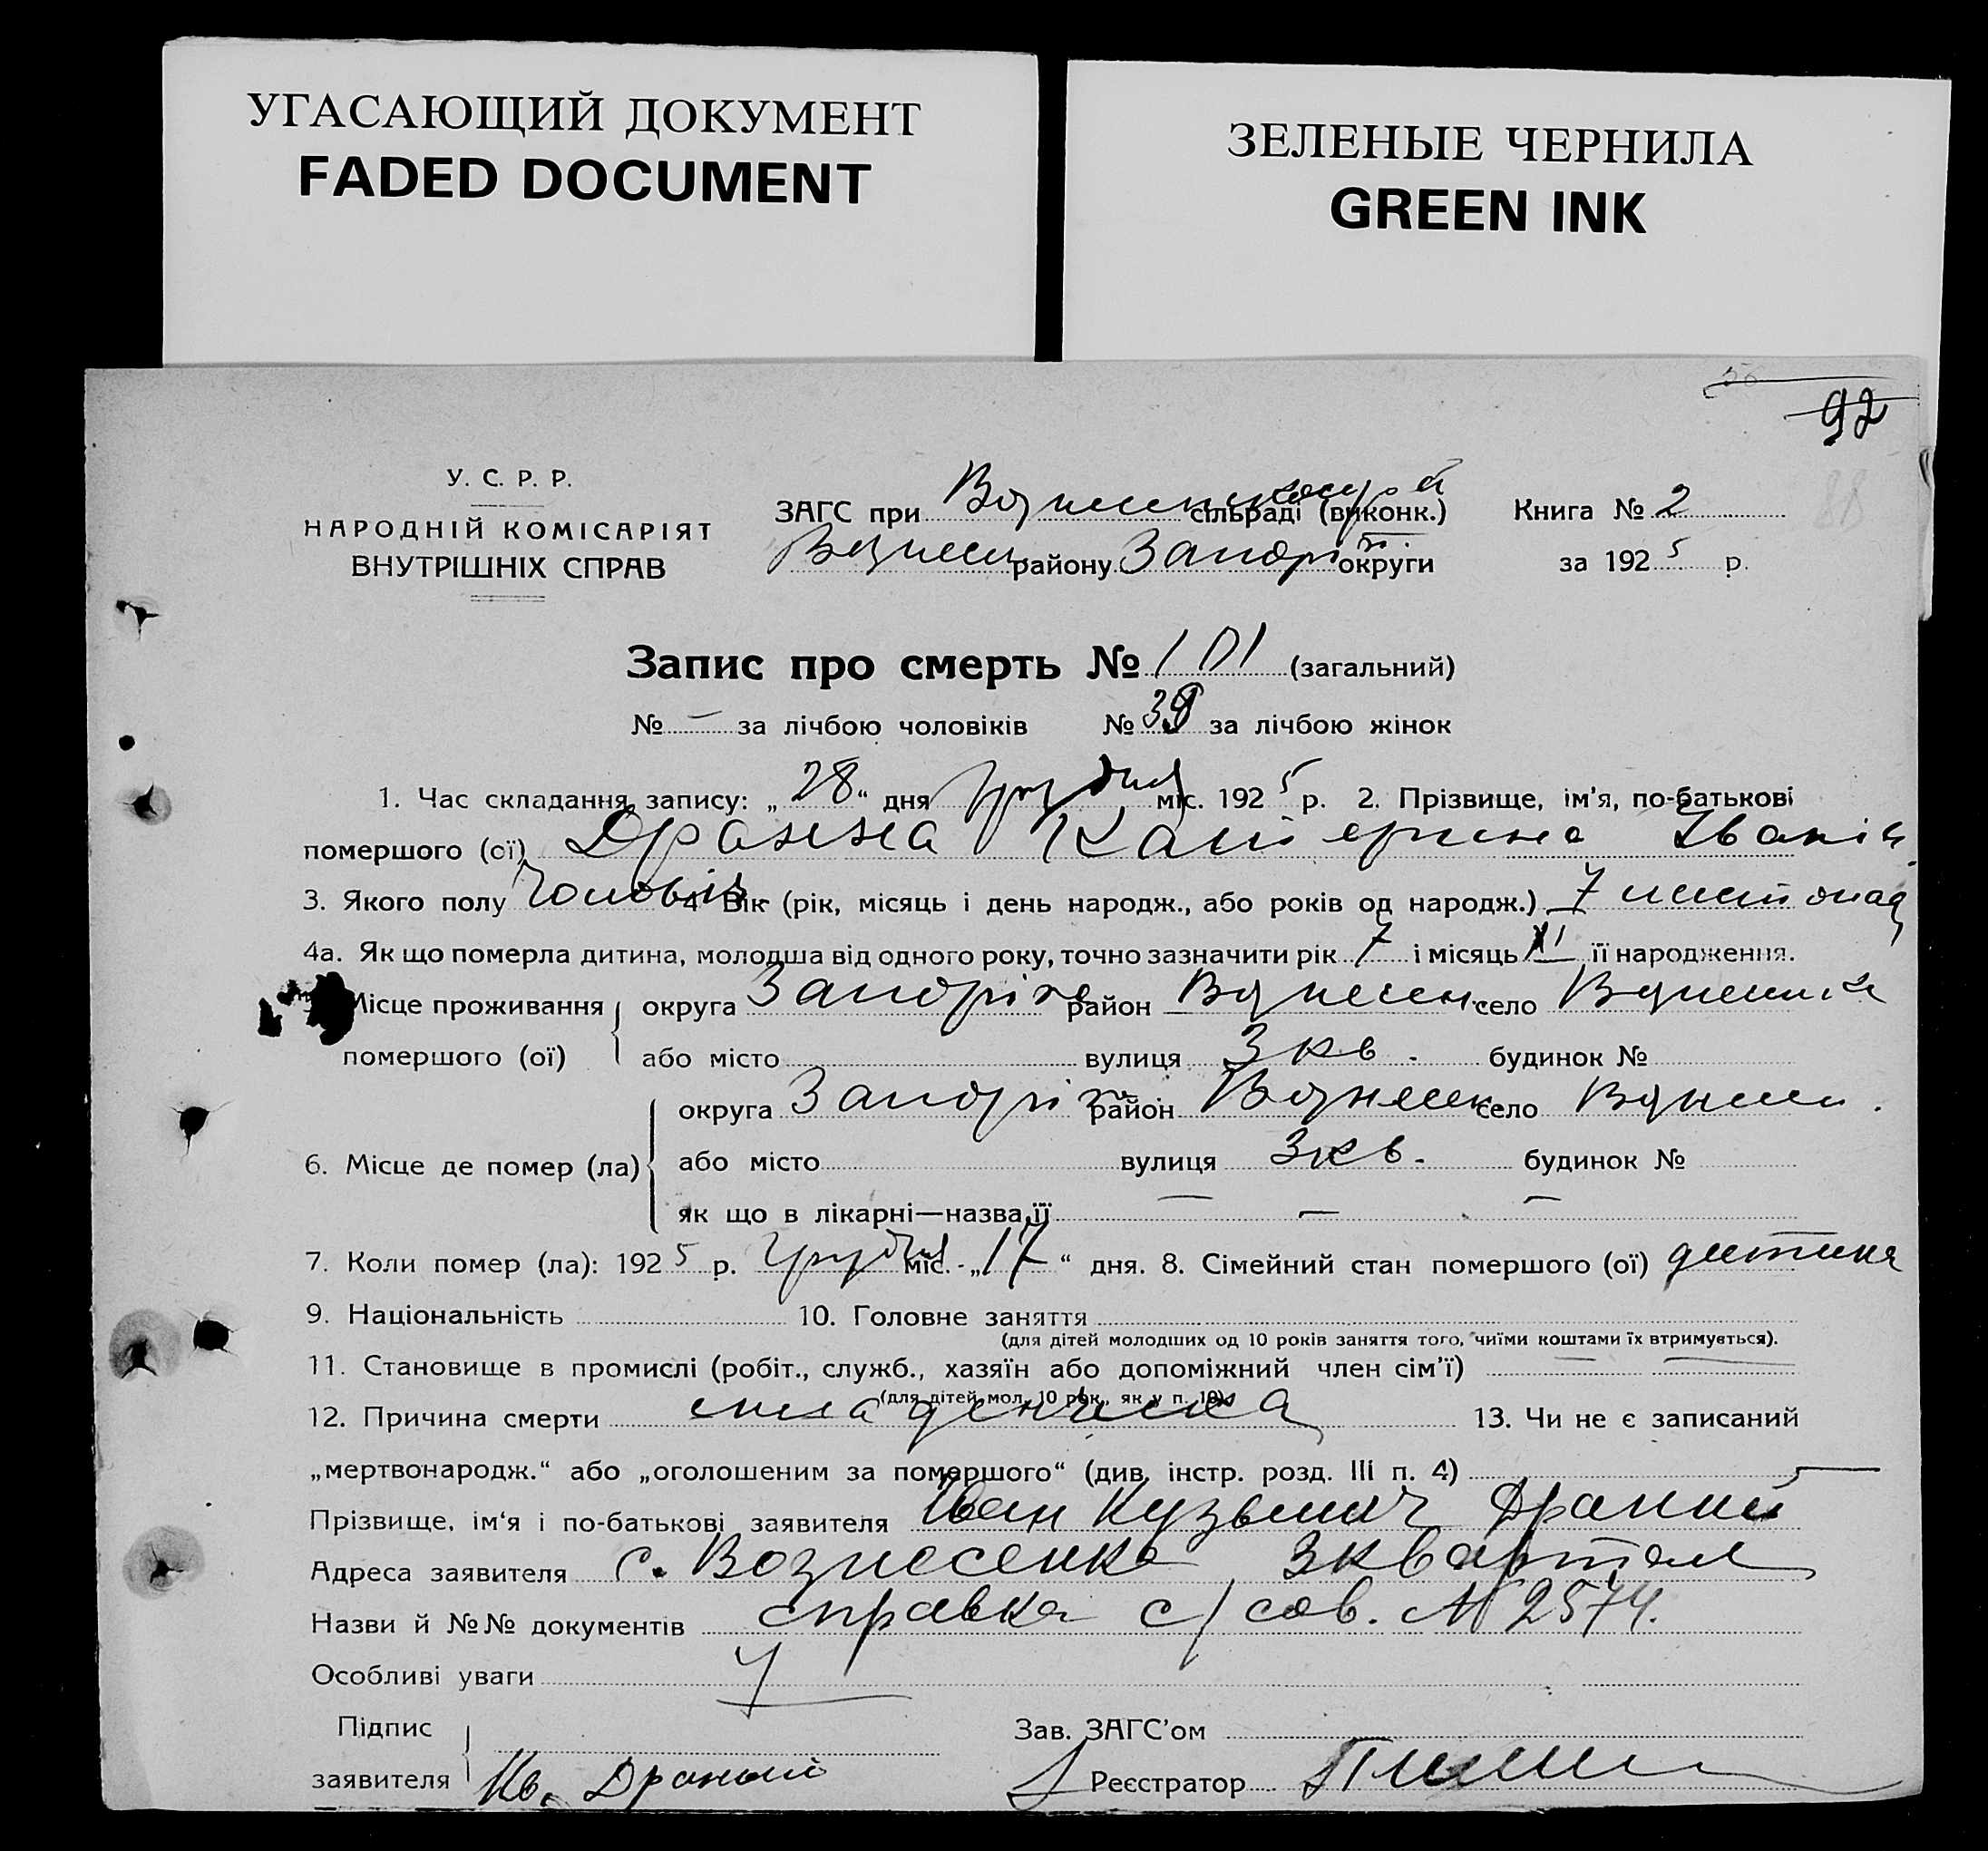 УГАСАЮЩИЙ ДОКУМЕНТ
FADED DOCUMENT
ЗЕЛЕНЫЕ ЧЕРНИЛА
GREEN INK
92
У. С. Р. Р.
НАРОДНІЙ КОМІСАРІЯТ
ВНУТРІШНІХ СПРАВ
ЗАГС при сільраді (виконк.)
Вознесен району Запоріз. округи
Книга № 2
за 1925 р.
Запис про смерть № 101 (загальний)
№ — за лічбою чоловіків № 39 за лічбою жінок
1. Час складання запису: „28“ дня грудня міс. 1925 р. 2. Прізвище, ім’я, по-батькові
помершого (ої) Дранна Катерина Іванів.
3. Якого полу Чоловіч. 4 Вік (рік, місяць і день народж., або років од народж.) 7 листопад
4а. Як що померла дитина, молодша від одного року, точно зазначити рік 7 і місяць XI її народження.
Місце проживання округа Запоріж район Вознесен. село Вознесенка
помершого (ої) або місто вулиця 3 кв. будинок №
округа Запоріж район Вознесен село Вознесен.
6. Місце де помер (ла) або місто вулиця 3 кв. будинок №
як що в лікарні—назва її — — —
7. Коли помер (ла): 1925 р. грудня міс. „17“ дня. 8. Сімейний стан помершого (ої) дитина
9. Національність 10. Головне заняття
(для дітей молодших од 10 років заняття того, чиїми коштами їх втримується).
11. Становище в промислі (робіт., служб., хазяїн або допоміжний член сім’ї) — —
(для дітей мол. 10 рок., як у п. 10).
12. Причина смерти 13. Чи не є записаний
„мертвонародж.“ або „оголошеним за помершого“ (див. інстр. розд. III п. 4) —
Прізвище, ім‘я і по-батькові заявителя Иван Кузьмич Дранний
Адреса заявителя с. Вознесенка 3 квартал
Назви й №№ документів справка с/сов. № 2574.
Особливі уваги
Підпис
заявителя Ив. Дранный
Зав. ЗАГС’ом
Реєстратор